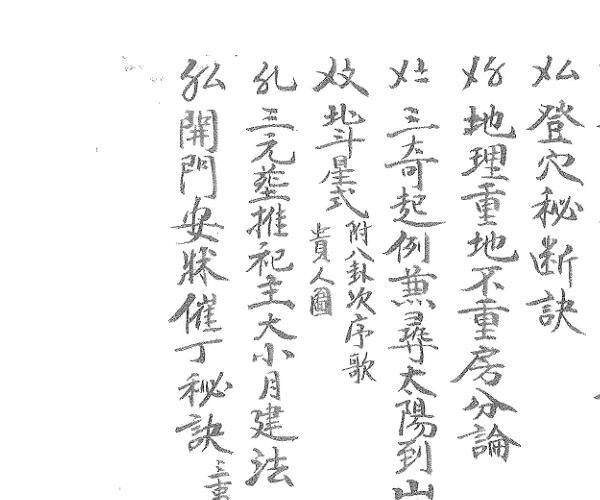 登穴秘断訣
地理重地不重房分論
三奇起例兼尋太陽到山
北斗星式
附八卦次序歌
貴人圖
三元塟推祀主大小月建法
開門安牀催丁秘訣